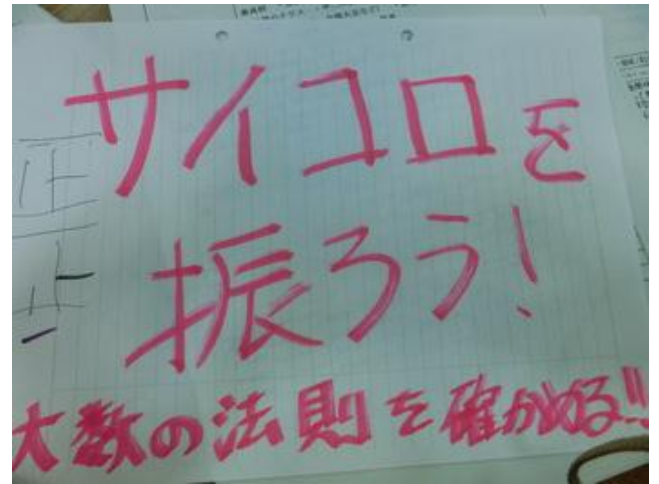 サイコロを
振ろう!
大数の法則を確かめる!!
正